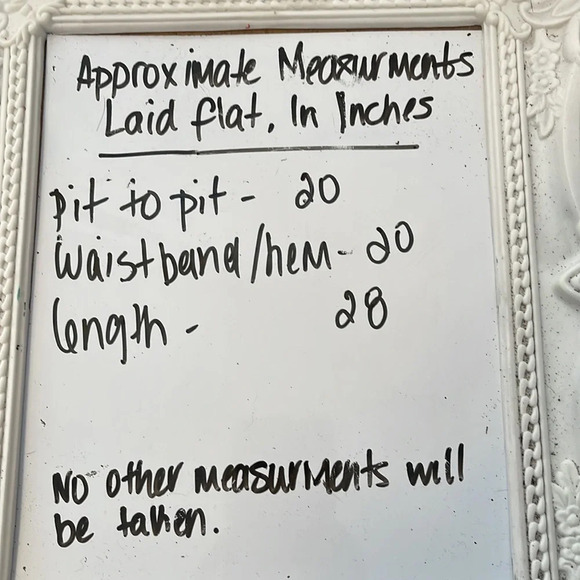 Approximate Measurments
Laid flat, In Inches
pit to pit - 20
Waistband/hem - 20
length - 28
No other measurments will
be taken.